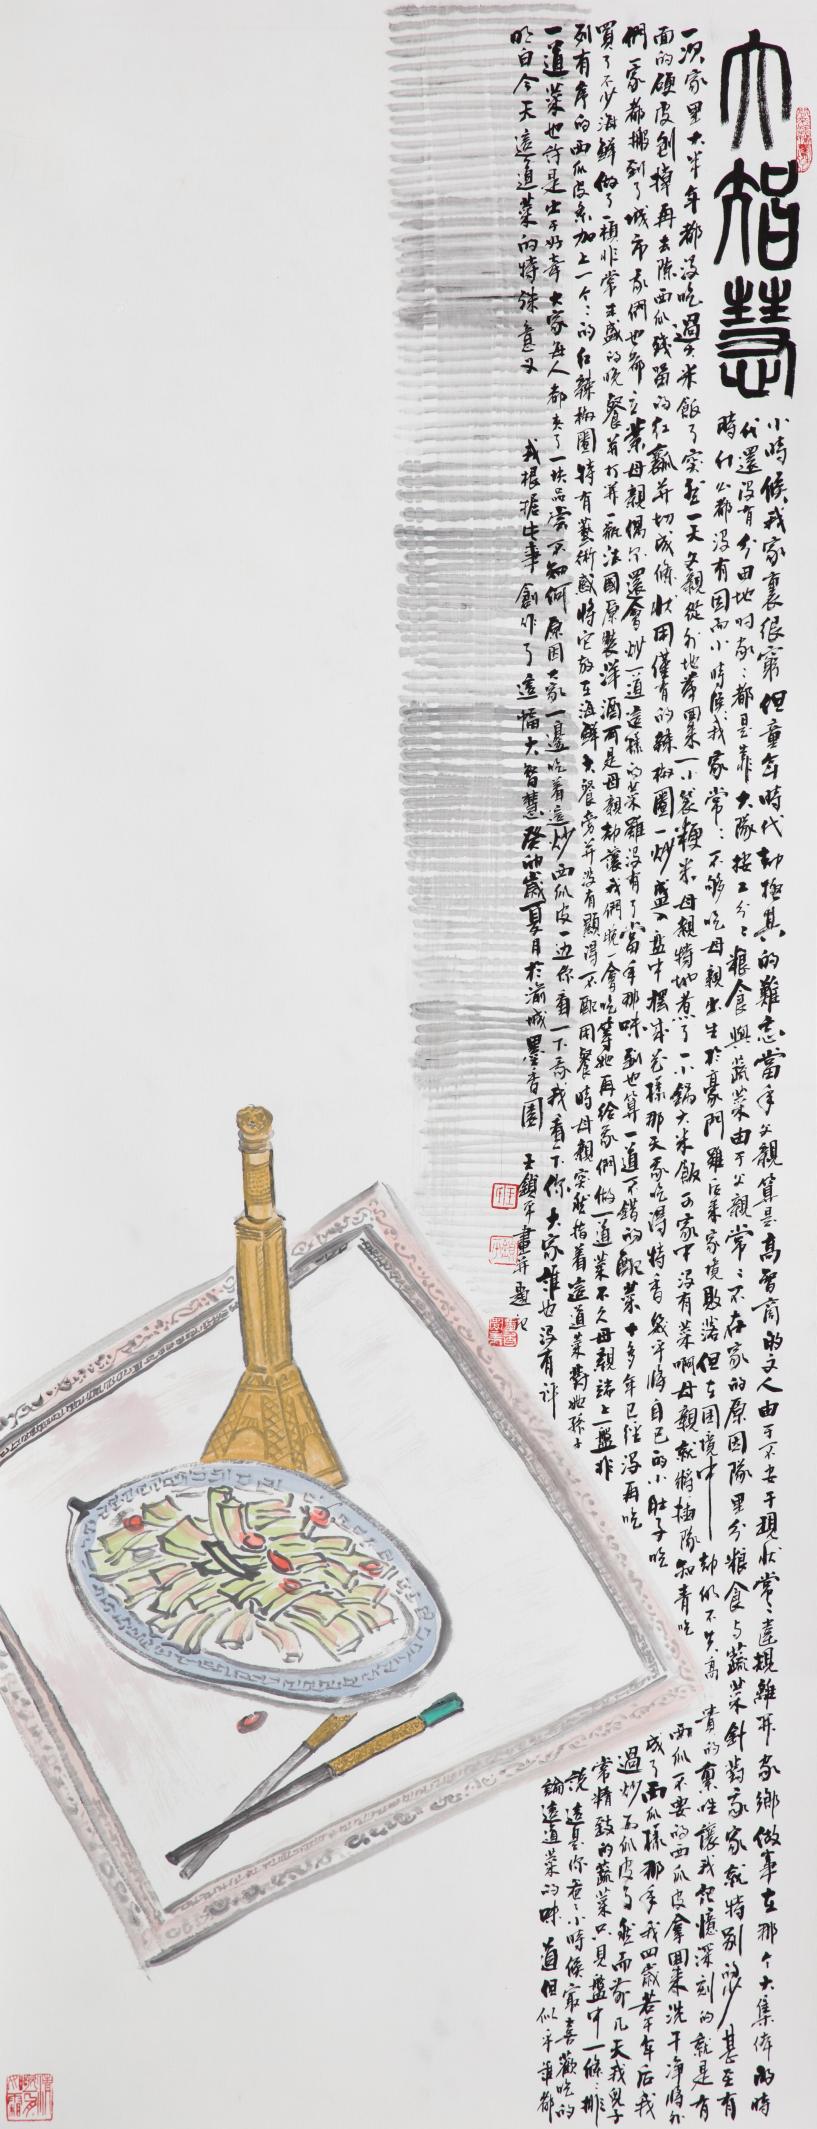 大智慧
小時候我家裏很窮但童年時代却極其的難忘當年父親算是高智商的文人由于不安于現狀常〻違規離开家鄉做事在那个大集体的時
代還没有分田地時家〻都是靠大隊按工分〻粮食與蔬菜由于父親常〻不在家的原因隊里分粮食与蔬菜針對我家就特别的少甚至有
時什么都没有因而小時候我家常〻不够吃母親出生於豪門雖后来家境敗落但在困境中却似不失高貴的禀性讓我記憶深刻的就是有
一次家里大半年都没吃過大米飯了突然一天父親從外地帶回来一小袋粳米母親特地煮了一小鍋大米飯可家中没有菜啊母親就將插隊知青吃西瓜不要的西瓜皮拿回来洗干净將外
面的硬皮刨掉再去除西瓜殘留的红瓤并切成條狀用僅有的辣椒圈一炒盛入盘中摆成花樣那天我吃得特香幾乎將自己的小肚子吃成了西瓜樣那年我四歲若干年后我
們一家都搬到了城市我們也都立業母親偶尔還會炒一道這樣的菜雖没有了當年那味到也算一道不錯的配菜十多年已經没再吃過炒西瓜皮了然而前几天我兒子
買了不少海鮮做了一頓非常丰盛的晚餐并打开一瓶法國原裝洋酒可是母親却讓我們晚一會吃等她再给我們做一道菜不久母親端上一盤非常精致的蔬菜只見盤中一條〻排
列有序的西瓜皮条加上一个〻的红辣椒圈特有藝術感將它放在海鮮大餐旁并没有顯得不配用餐時母親突然指着這道菜對她孫子説這是你爸〻小時候最喜歡吃的
一道菜也許是出于好奇大家每人都夾了一块品尝不知何原因大家一邊吃着這炒西瓜皮一边你看一下我我看下你大家誰也没有評論這道菜的味道但似乎誰都
明白今天這道菜的特殊意义
我根据此事創作了這幅大智慧癸卯歲夏月於渝城墨香園
王鎖平畫并題記